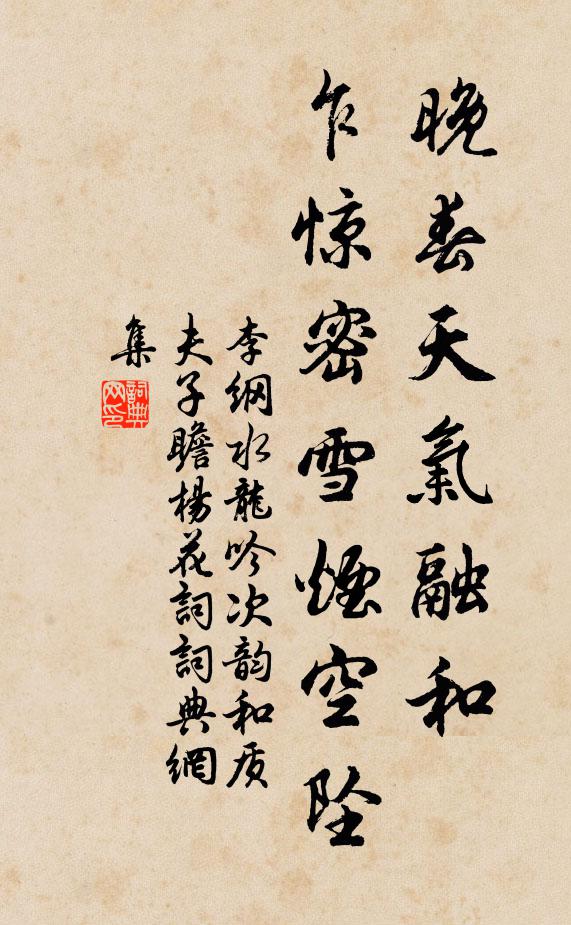 晚春天氣融和
乍惊密雪煙空坠
李纲水龍吟次韵和质
夫子瞻楊花詞詞典網
集
詞典
网印